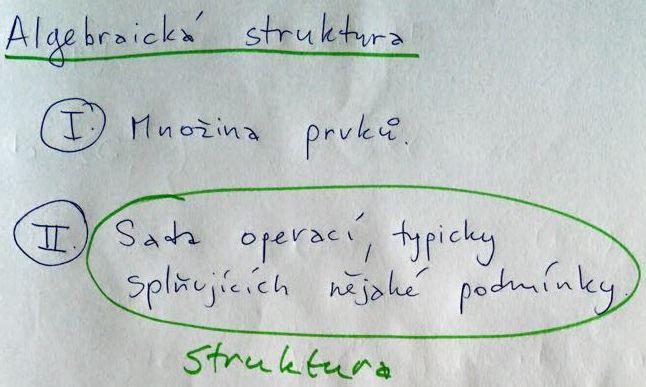 Algebraická struktura
I. Množina prvků.
II. Sada operací, typicky
splňujících nějaké podmínky.
struktura